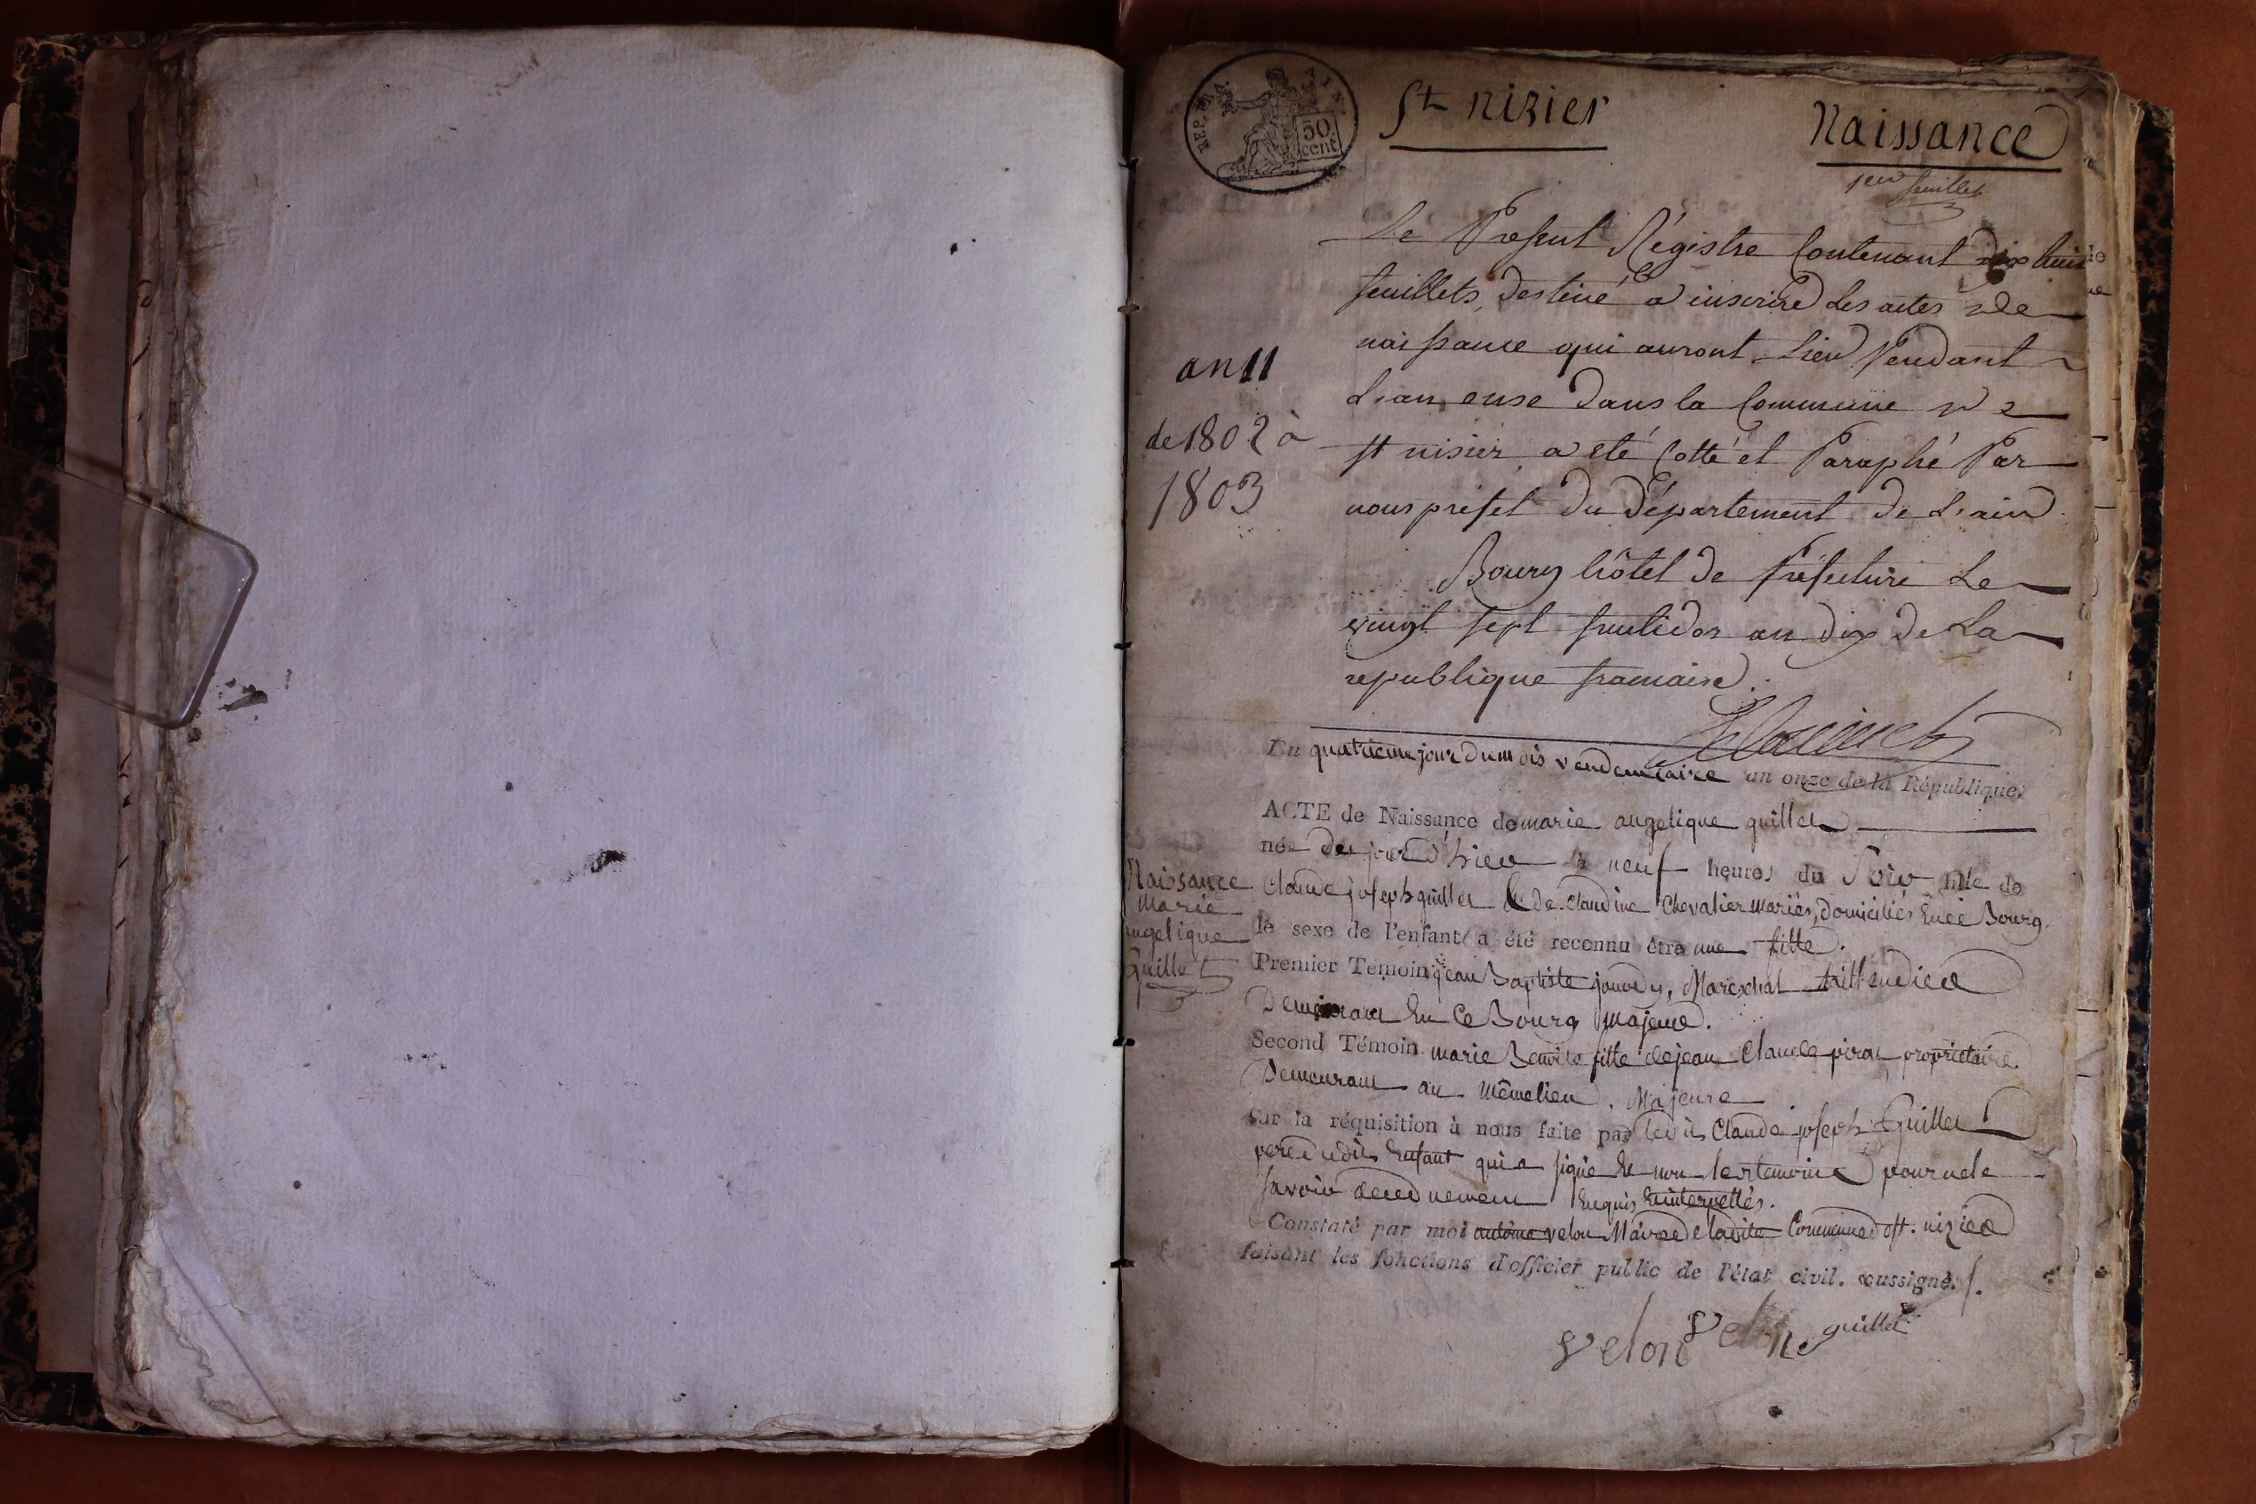 REP. FRA. AIN.
50 cent
St nizier
Naissance
1er feuillet
Le Present Régistre Contenant dix huit
feuillets, destiné a inscrire Les actes de
naissance qui auront Lieu Pendant
L'an onse dans la Commune de
st nisier, a été Cotté et Paraphé Par
nous prefet du Département de L'ain
Bourg hôtel de préfecture Le
vingt sept fructidor an dix de La
republique francaise.
an 11
de 1802 à
1803
Du quatrieme jour du mois vendemiaire an onze de la République.
ACTE de Naissance de marie angelique guillet
née du jour d'hier à neuf heures du Soir fille de
Claude joseph guillet & de Claudine Chevalier mariés, domiciliés en ce Bourg.
le sexe de l'enfant a été reconnu être une fille.
Premier Témoin jean Baptiste, Marechal
Demeurant En Ce Bourg majeur.
Second Témoin marie Benoite fille de jean Claude piron propriétaire
Demeurant au même lieu. Majeure
Sur la réquisition à nous faite par Claude joseph Guillet
pere dudit Enfant qui a signé & non les temoins pour ne le
savoir de ce duement Enquis & interpellés.
Constaté par moi antoine velon Maire de la dite Commune de st. nizier
faisant les fonctions d'officier public de l'état civil. soussigné.
Naissance
Marie
angelique
Guillet
velon velon guillet